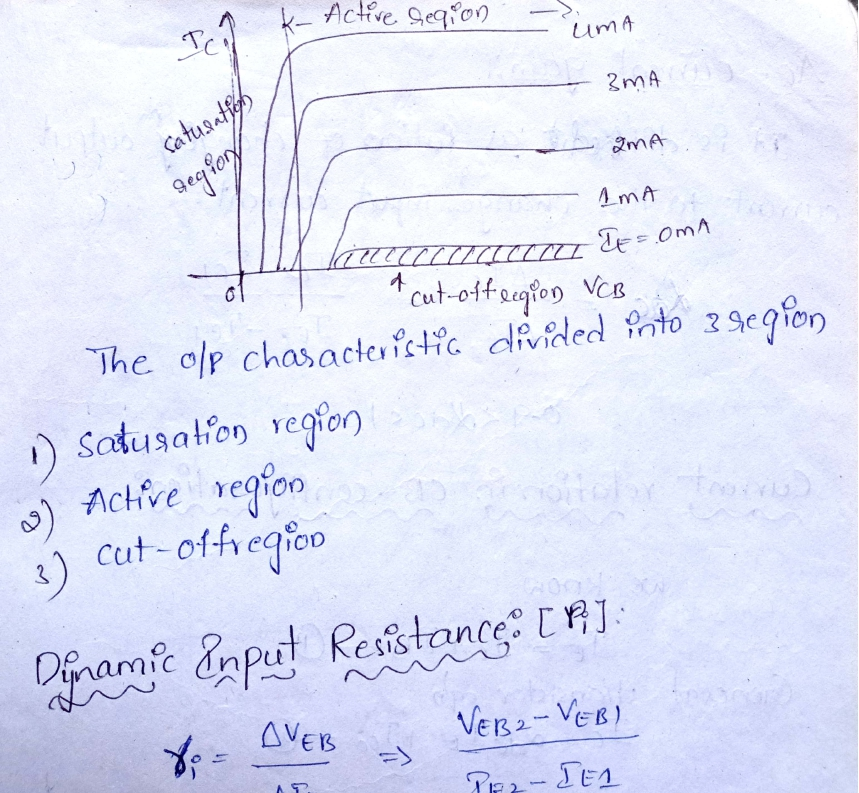 Ic
k- Active region ->
4mA
saturation
region
3mA
2mA
1mA
IE = 0mA
0
cut-off region VCB
The o/p characteristic divided into 3 region
1) saturation region
2) Active region
3) cut-off region
Dynamic Input Resistance: [ri]:
ri = ΔVEB => VEB2 - VEB1
IE2 - IE1